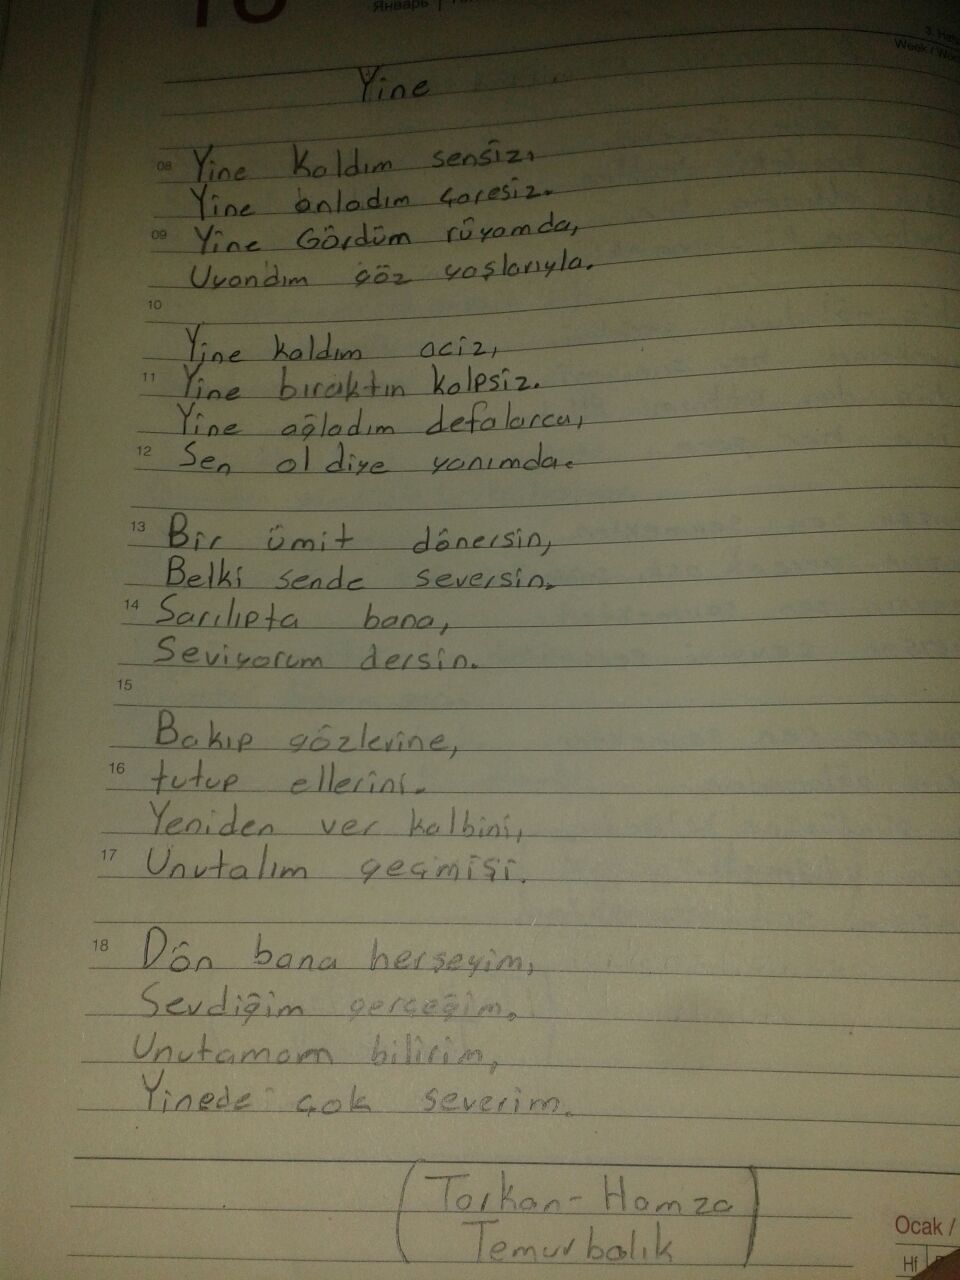 Январь
Yine
08 Yine kaldım sensiz,
Yine anladım çaresiz.
09 Yine Gördüm rüyamda,
Uyandım göz yaşlarıyla.
10
Yine kaldım aciz,
11 Yine bıraktın kalpsiz.
Yine ağladım defalarca,
12 Sen ol diye yanımda.
13 Bir ümit dönersin,
Belki sende seversin.
14 Sarılıpta bana,
Seviyorum dersin.
15
Bakıp gözlerine,
16 tutup ellerini.
Yeniden ver kalbini,
17 Unutalım geçmişi.
18 Dön bana herşeyim,
Sevdiğim gerçeğim.
Unutamam bilirim,
Yinede çok severim.
(Tarkan-Hamza
Temurbalık)
Ocak /